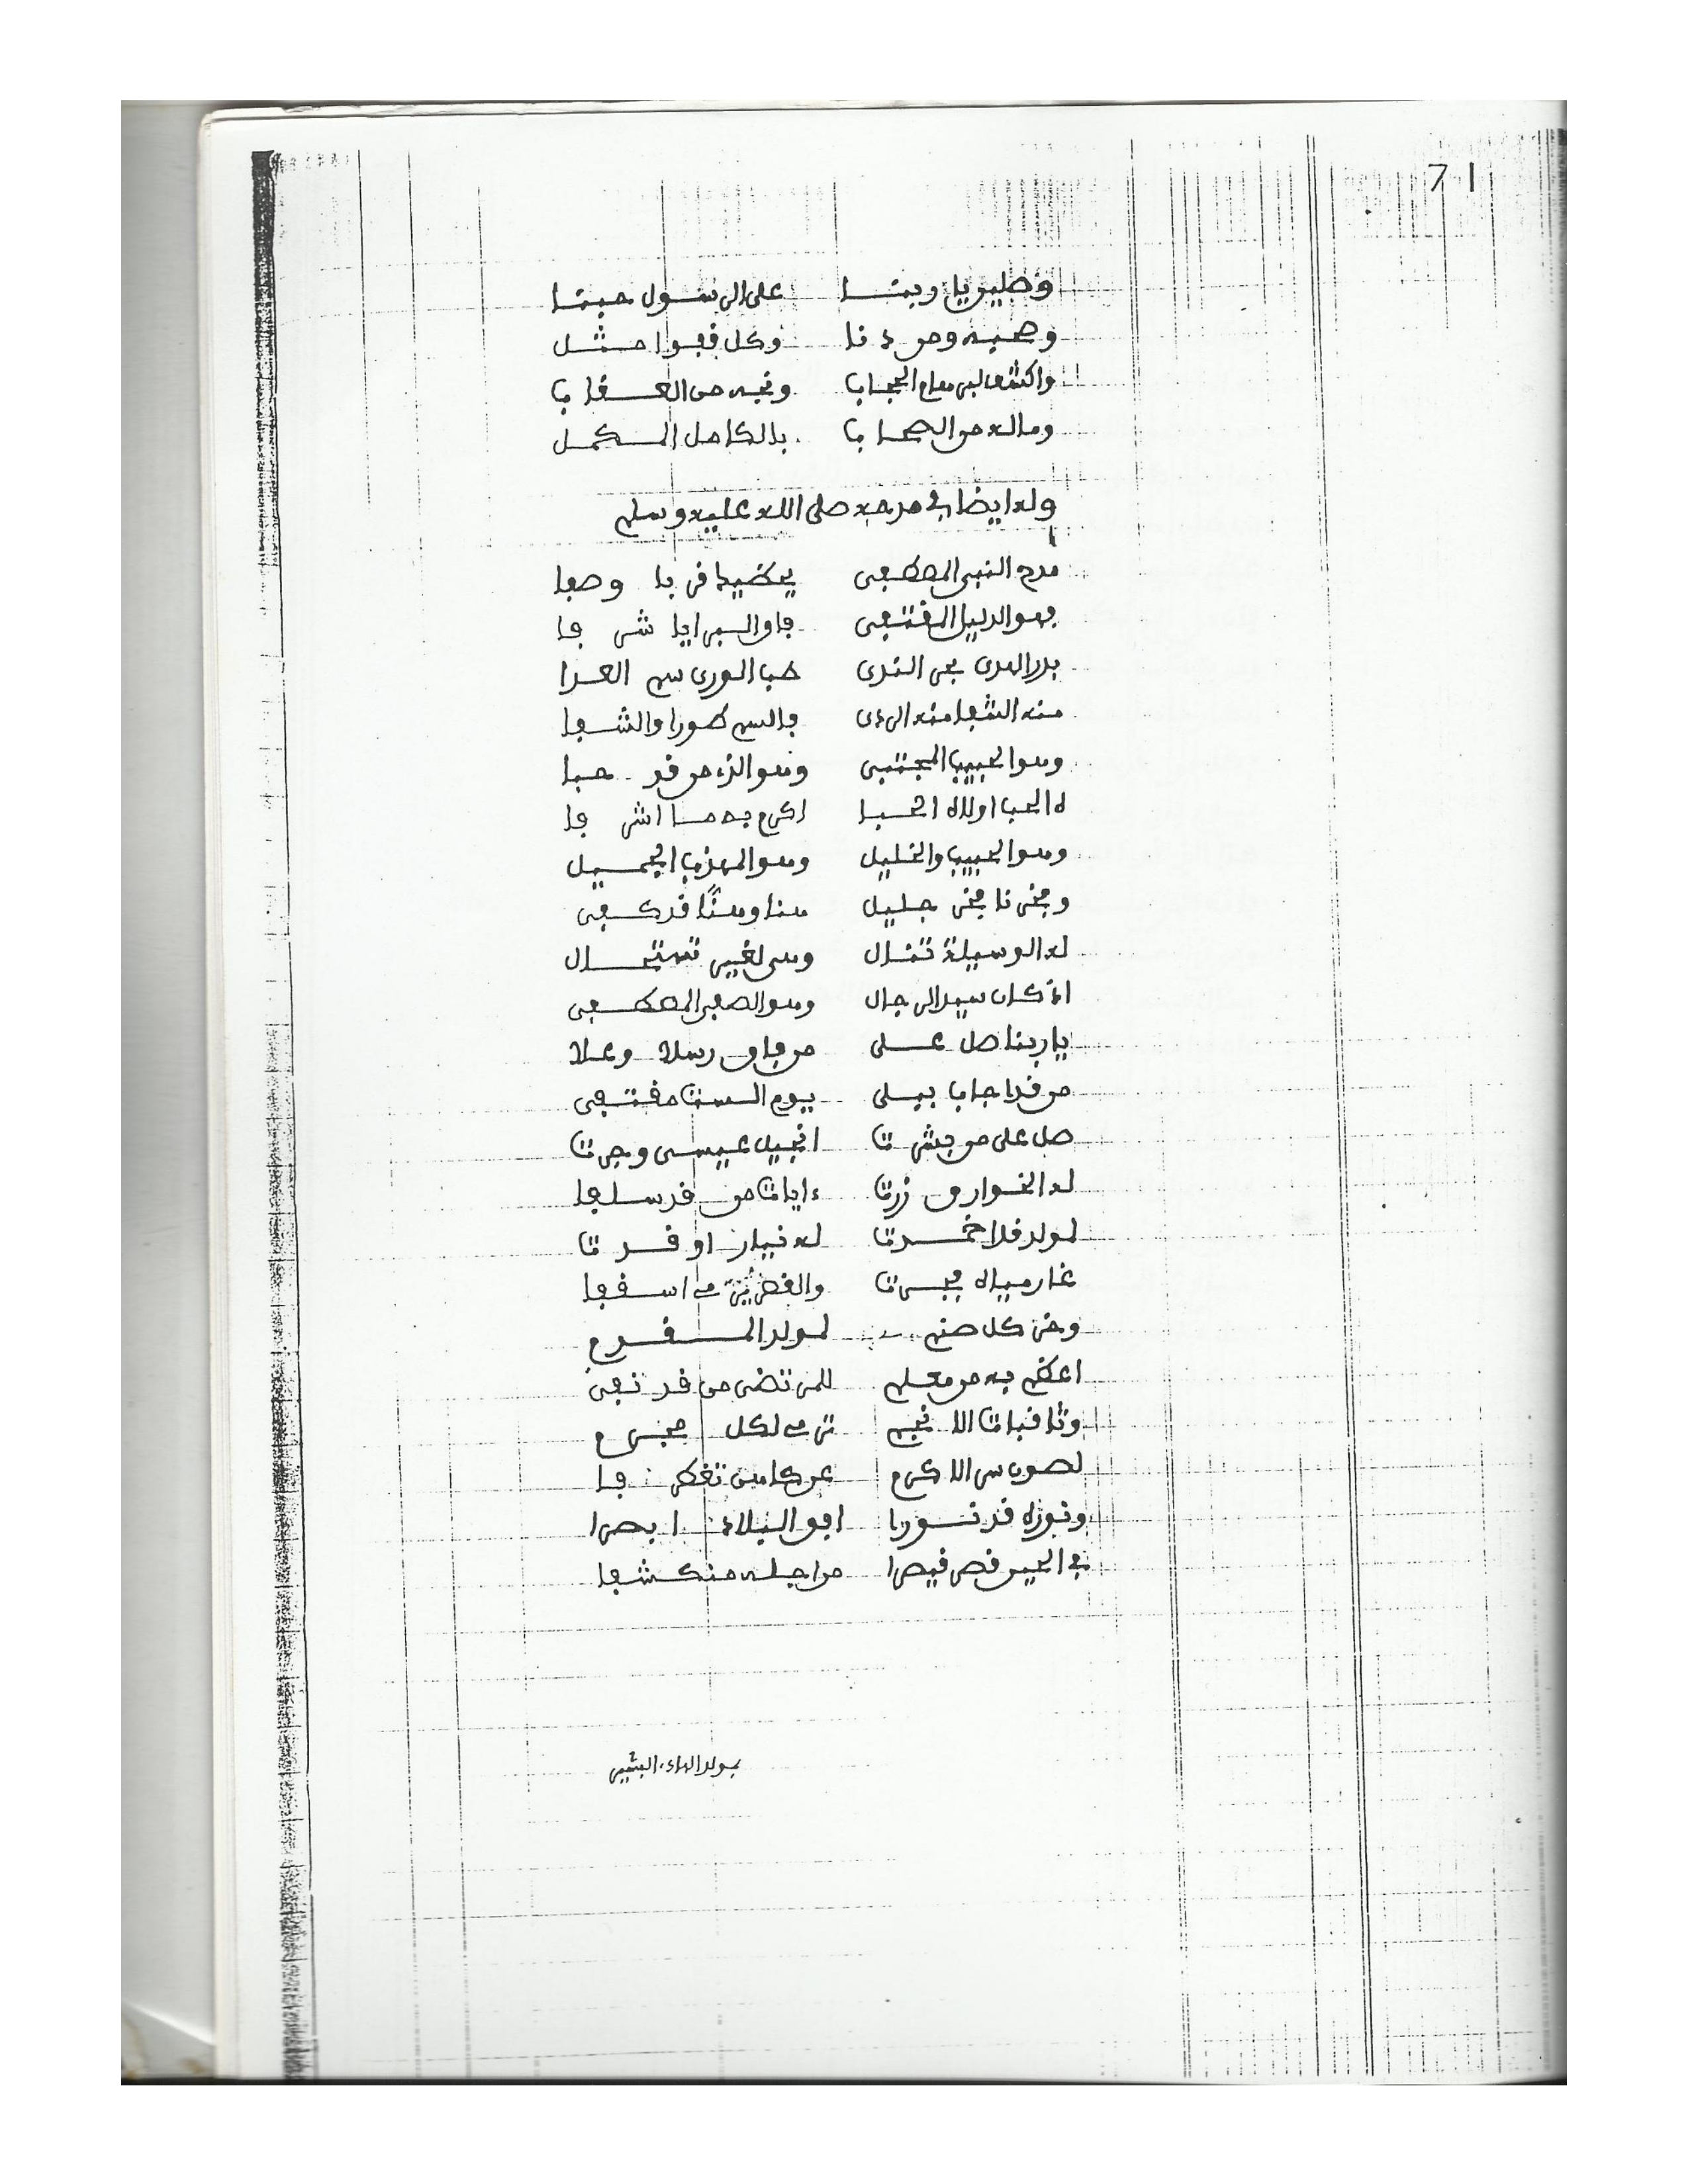 71
وصلين يا ربنا على الرسول حبنا
وصحبه ومن دنا وكل قفوا مثل
واكشف لبى معاع الحجاب ونجه من العقاب
وماله من الصحاب بالكامل المكمل
وله ايضا في مدحه صلى الله عليه وسلم
مدح النبي المصطفى يعطيك قربا وصفا
فهو الدليل المقتفى فاق البرايا شرفا
بدر الهدى بحر الندى حب الورى سم العدا
منه الشفا منه الردى فالسم طورا والشفا
وهو الحبيب المجتبى وهو الذي من قد حبا
ه الحب اولاه الحبا اكرم به ما اشرفا
وهو الحبيب والخليل وهو المهذب الجميل
وفخرنا فخر جليل هنا وهنًا قد كفى
له الوسيلة تنال وهي لغير تستحال
اذ كان سيد الرجال وهو الصفي المصطفى
يا ربنا صل على من فاق رسلا وعلا
من قد اجاب ببلى يوم الست مقتفى
صل على من بشرت انجيل عيسى وجرت
له الخوارق زرت ءايات من قد سلفا
لمولد فلا خمدت له نيار اوقدت
غار مياه فجرت والقصر ثمت اسقفا
وخر كل صنم لمولد المقدم
اعظم به من معلم للمرتضى من قد تقى
وثاقبات الانجم ترمى لكل مجرم
لصون سر الاكرم عن كاهن تغطرفا
ونوره قد نورا افق البلاد ابصرا
في الحين قصر قيصرا من اجله منكشفا
بولد الهاء البشير